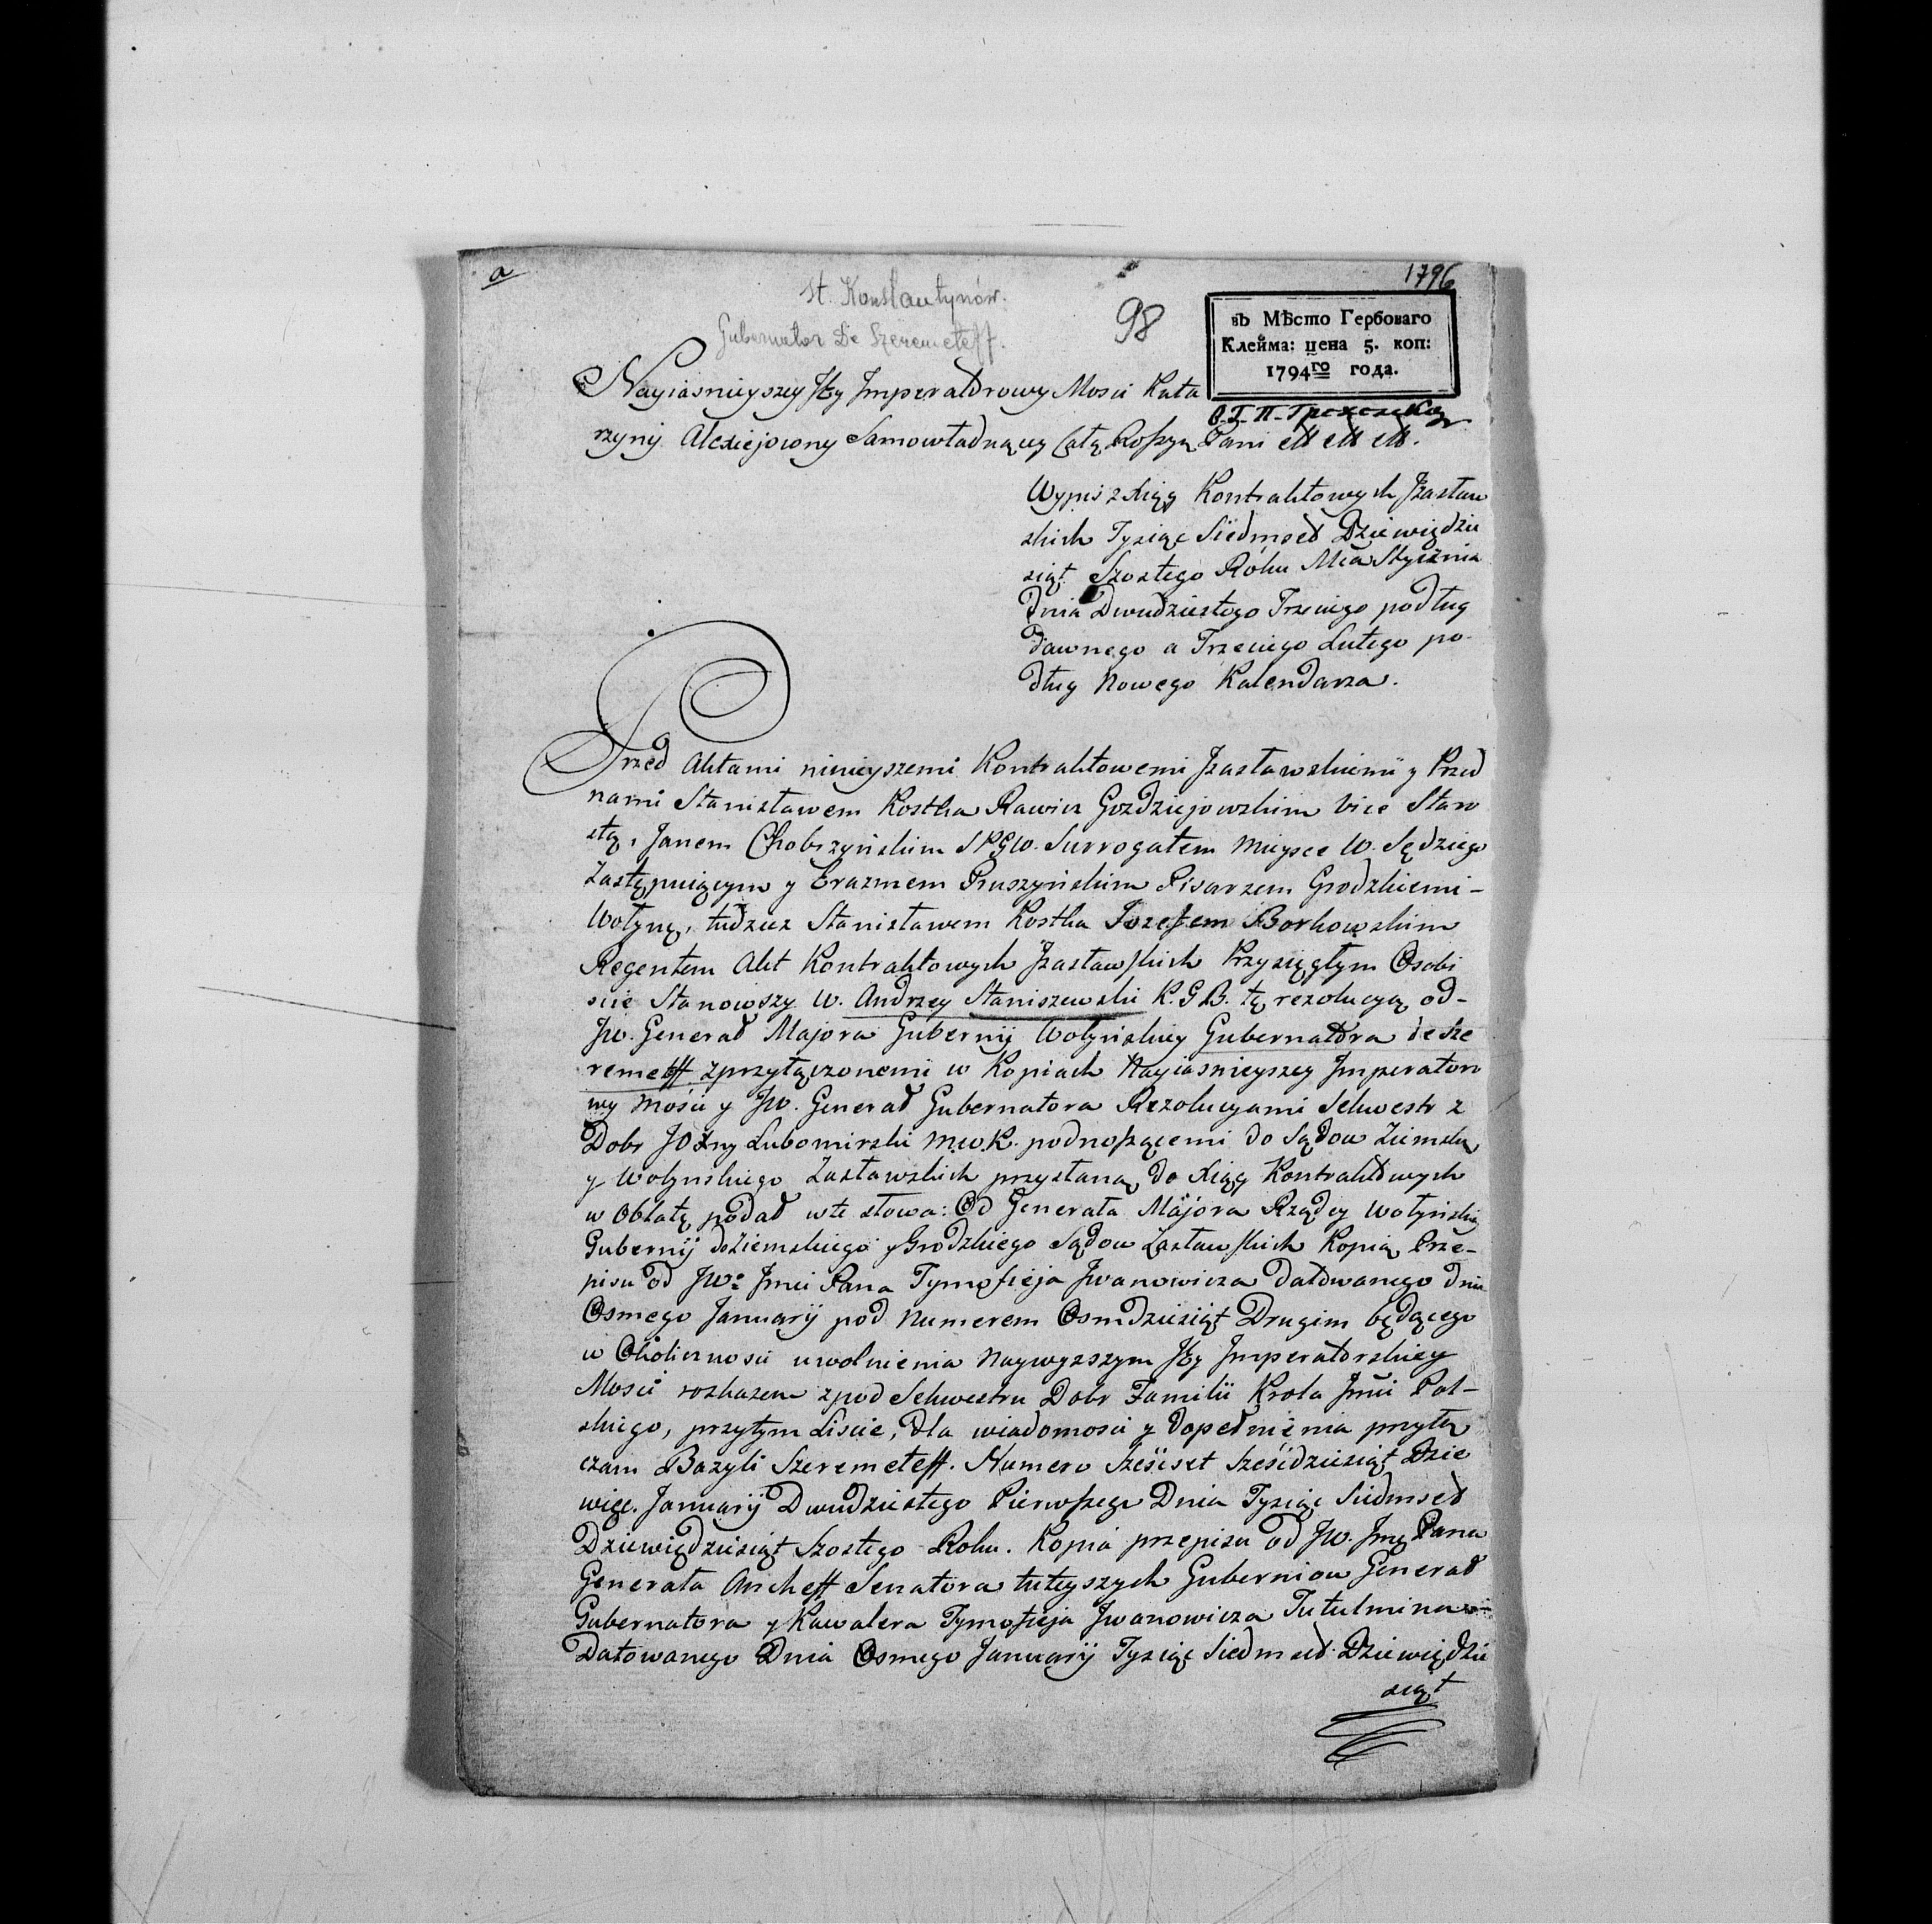 a
1796
St. Konstantynów.
98
Gubernator De Szeremeteff.
въ Мѣсто Гербоваго
Клейма: цена 5. коп:
1794го года.
Nayiasnieyszey Jey Imperatorowy Mosci Kata
rzyny Alexiejowny Samowładnący Całą Rossyą Pani
Wypis z Xiąg Kontraktowych Jzasław
skich Tysiąc Siedmset Dziewiędzie
siąt Szostego Roku Mca Stycznia
Dnia Dwudziestego Trzeciego podług
dawnego a Trzeciego Lutego po
dług Nowego Kalendarza.
Przed Aktami ninieyszemi Kontraktowemi Jzasławskiemi y Przed
nami Stanisławem Kostka Rawicz Gozdziejowskim Vice Staro
stą, Janem Chobrzyńskim SPGW. Surrogatem Mieysce W. Sędziego
Zastępuiącym y Erazmem Pruszyńskim Pisarzem Grodzkiemi -
Wołyną, tudziez Stanisławem Kostka Jozefem Borkowskim
Regentem Akt Kontraktowych Jzasławskich Przysięgłym Osobi
scie Stanowszy W. Andrzey Staniszewski K.G.B. tę rezolucyą od -
JW. Generał Majora Gubernij Wołynskiey Gubernatora de Sze
remeteff z przyłączonemi w Kopiach Nayiasnieyszey Imperatoro
wy Mości y JW. Generał Gubernatora Rezolucyami Sekwestr z
Dobr JOXny Lubomirski M.W.K. podnoszącemi do Sądow Ziemsk
y Wołynskiego Zasławskich przysłaną do Xiąg Kontraktowych
w Oblatę podał w te słowa: Od Generała Majora Rządcy Wołyńskiey
Gubernij do Ziemskiego y Grodzkiego Sądow Zasławskich Kopią Prze -
pisu od JW: Jmci Pana Tymofieja Jwanowicza Datowanego Dnia
Osmego Januarij pod Numerem Osmdziesiąt Drugim będącego
w Okolicznosci uwolnienia Naywyzszym Jey Imperatorskiey
Mosci rozkazem z pod Sekwestru Dobr Familii Krola Jmci Pol -
skiego, przytym Liscie, dla wiadomosci y dopełnienia przyłą
czam Bazyli Szeremeteff. Numero Sześćset Sześćdziesiąt Dzie
więć. Januarij Dwudziestego Pierwszego Dnia Tysiąc Siedmset
Dziewiędziesiąt Szostego Roku. Kopia przepisu od JW. Jmę Pana
Generała Ancheff Senatora tuteyszych Guberniow Generał
Gubernatora y Kawalera Tymofieja Jwanowicza Tutulmina -
Datowanego Dnia Osmego Januarij Tysiąc Siedmset Dziewiędzie
siąt